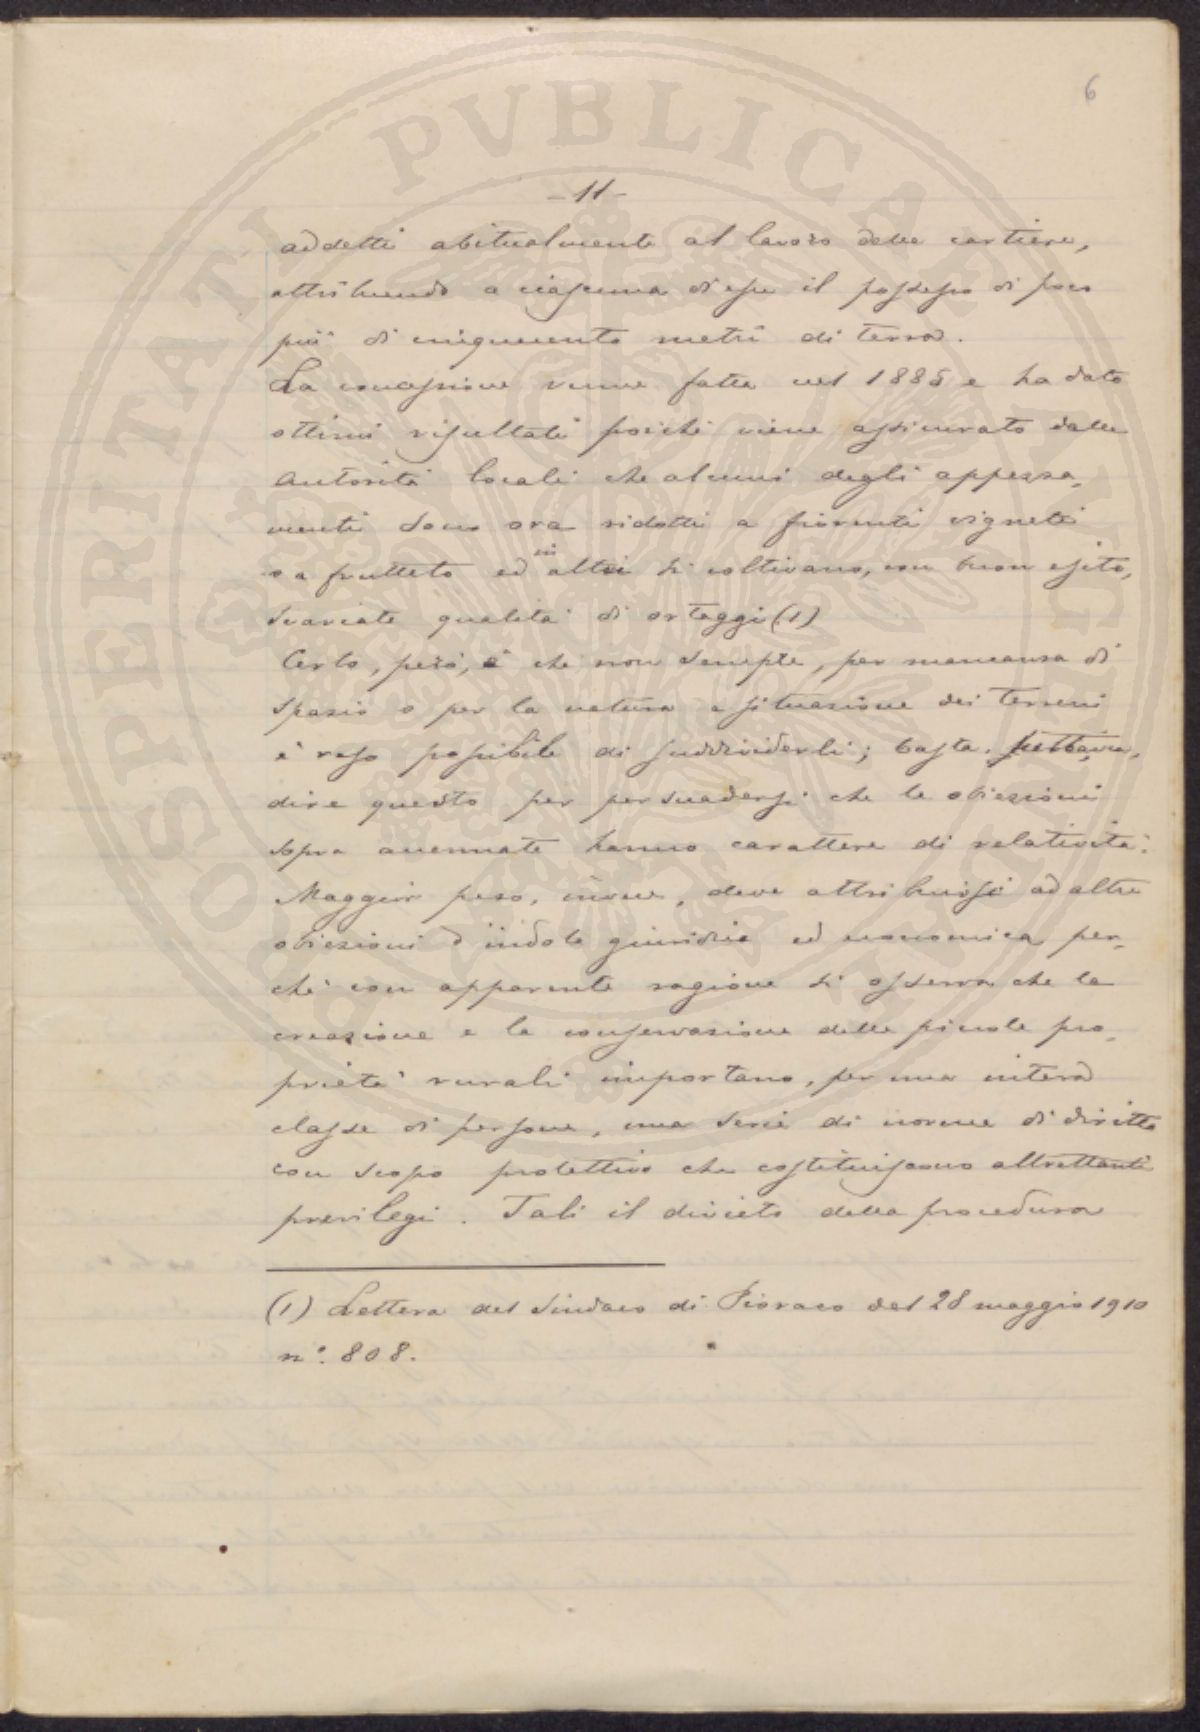 6
- 11 -
addetti abitualmente al lavoro delle cartiere,
attribuendo a ciascuna di esse il possesso di poco
più di cinquecento metri di terra.
La concessione venne fatta nel 1885 e ha dato
ottimi risultati poichè viene assicurato dalle
Autorità locali che alcuni degli appezza-
menti sono ora ridotti a fiorenti vigneti
o a frutteto ed in altri si coltivano, con buon esito,
svariate qualità di ortaggi (1)
Certo, però, è che non sempre, per mancanza di
spazio o per la natura e situazione dei terreni
è reso possibile di suddividerli; basta,
dire questo per persuadersi che le obiezioni
sopra accennate hanno carattere di relatività.
Maggior peso, invece, deve attribuirsi ad altre
obiezioni d'indole giuridica ed economica per-
chè con apparente ragione si osserva che la
creazione e la conservazione delle piccole pro-
prietà rurali importano, per una intera
classe di persone, una serie di norme di diritto
con scopo protettivo che costituiscono altrettanti
previlegi. Tali il divieto della procedura
(1) Lettera del Sindaco di Pioraco del 28 maggio 1910
n°. 808.
PROSPERITATI PVBLICAE